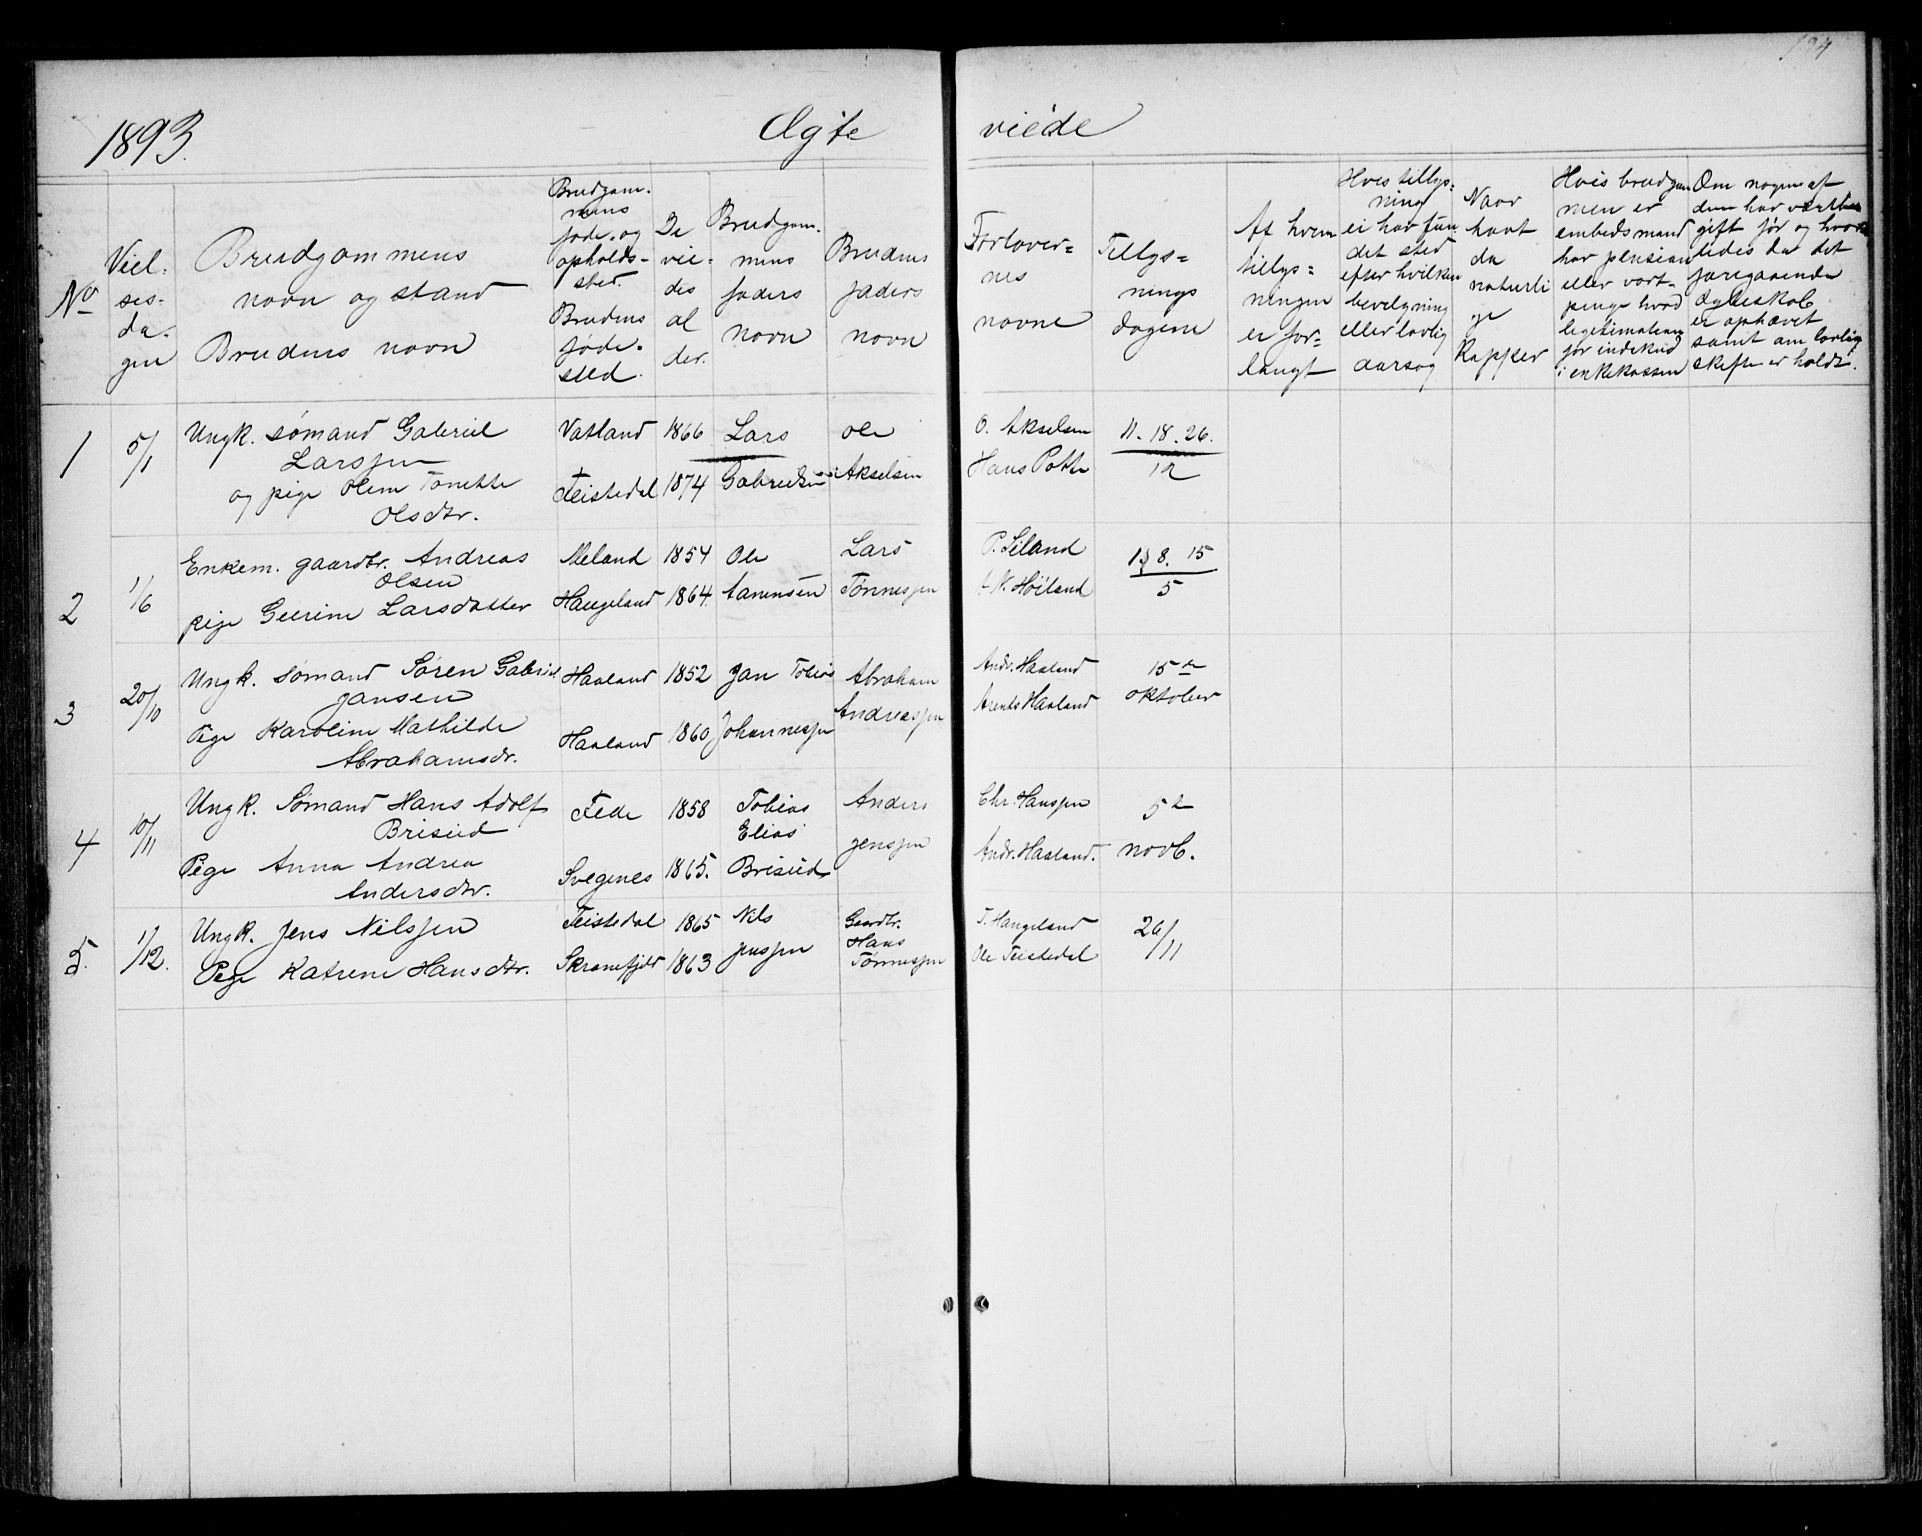 1893.
Ægte viede
No
Viel-
ses-
da-
gen
Brudgommens
navn og stand
Brudens navn
Brudgom-
mens
føde- og
opholds-
sted.
Brudens
føde-
sted.
De
vie-
des
al
der.
Brudgom-
mens
faders
navn
Brudens
faders
navn
Forlover-
nes
navne
Tillys-
nings
dagene
Af hvem
tillys-
ningen
er for-
langt
Hvis tillys-
ning
ei har fun
det sted
efter hvilken
bevilgning
eller lovlig
aarsag
Naar
havt
da
naturli
ge
Kopper
Hvis brudgom
men er
embedsmand
har pension
eller vart-
penge hvad
legitimation
for indskud
i enkekassen
Om nogen af
dem har været
gift før og hvor
ledes da det
foregaaende
ægteskab
er ophævet
samt om lovlig
skifte er holdt.
1
5/1
Ungk. sømand Gabriel
Larssen
og pige Oline Tonette
Olsdtr.
Vatland
Feistedal
1866
1874
Lars
Gabrielsen
Ole
Akselsen
O. Akselsen
Hans Potte
11. 18. 26.
12
2
1/6
Enkem. gaardbr. Andreas
Olsen
pige Geerine Larsdatter
Meland
Haugeland
1854
1864.
Ole
Aanensen
Lars
Tønnessen
P. Siland
N. Høiland
8. 15
5
3
20/10
Ungk. sømand Søren Gabriel
Jansen
Pige Karoline Mathilde
Abrahamsdr.
Haaland
Haaland
1852
1860
Jan Tobias
Johannessen
Abraham
Andreassen
Andr. Haaland
Arents Haaland
15de
oktober
4
10/11
Ungk. Sømand Hans Adolf
Briseid
Pige Anna Andrea
Andersdtr.
Fede
Svegenes
1858
1865.
Tobias
Elias
Briseid
Anders
Jenssen
Chr. Hanssen
Andr. Haaland.
5te
novb.
5.
1/12.
Ungk. Jens Nilssen
Pige Katrine Hansdtr.
Feistedal
Skranefjeld
1865
1863
Nils
Jenssen
Gaardbr.
Hans
Tønnessen
T. Haugeland
Ole Feistedal
26/11